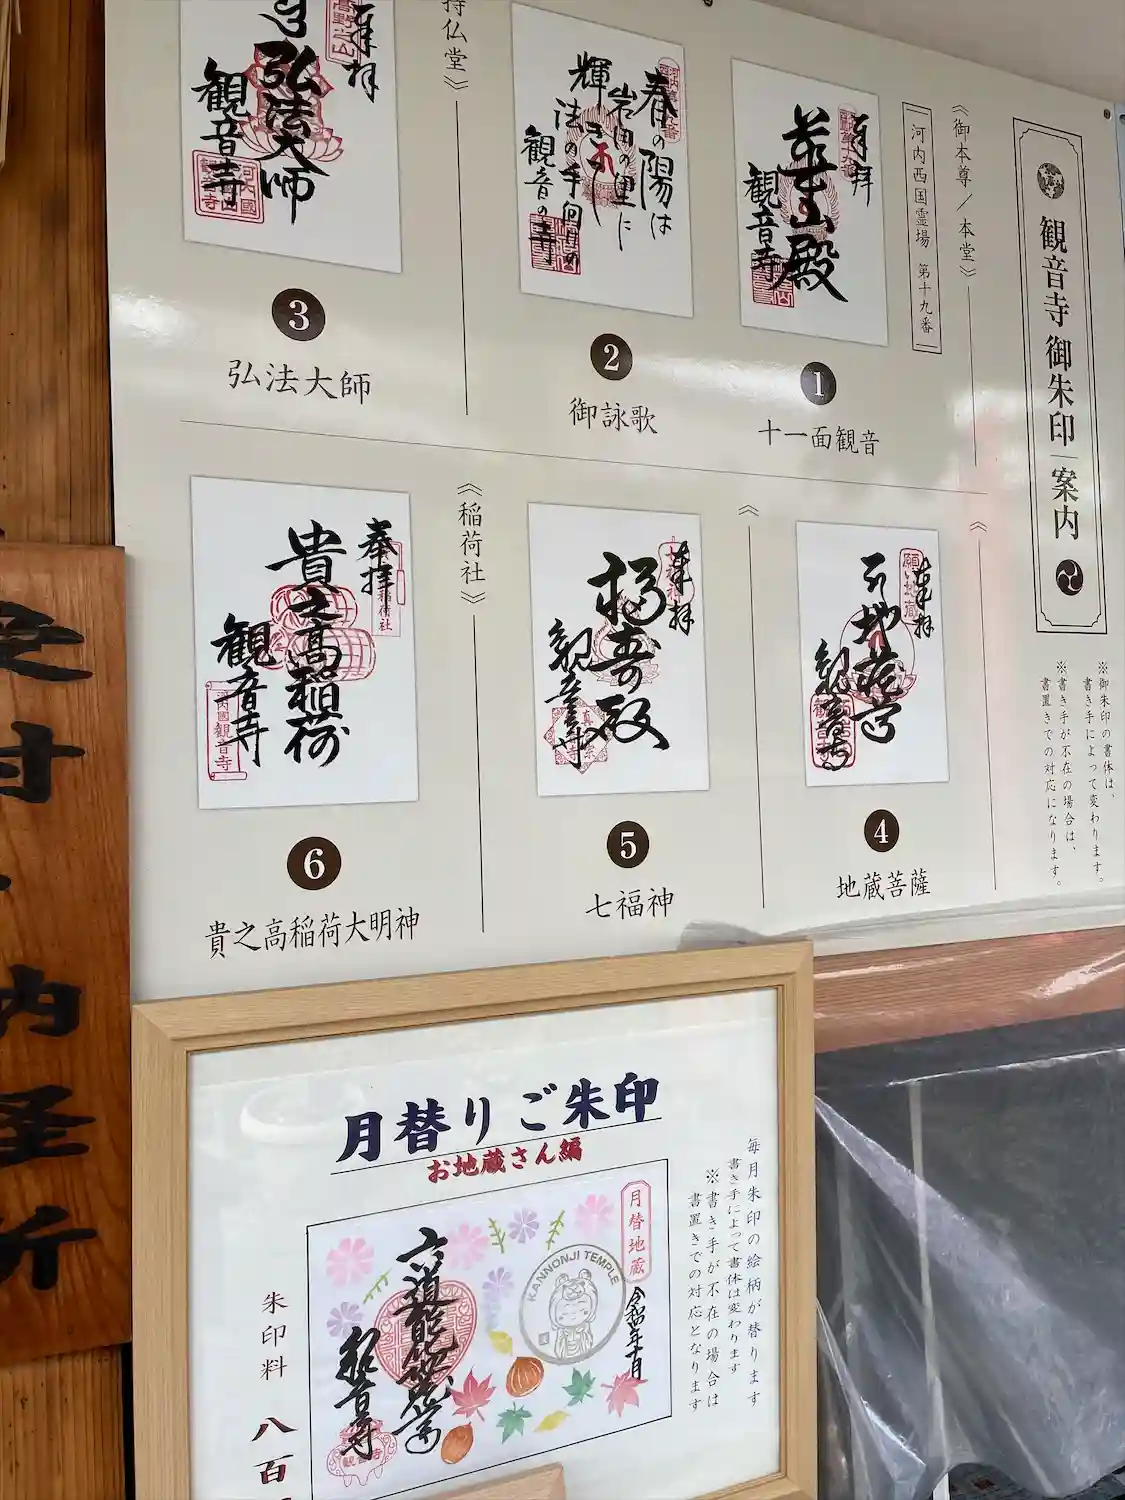 観音寺 御朱印 案内
※御朱印の書体は、
書き手によって変わります。
※書き手が不在の場合は、
書置きでの対応になります。
《御本尊／本堂》
河内西国霊場 第十九番
奉拝
観音寺
1
十一面観音
春日の陽は
岩田の里に
輝きて
法の手向けの
観音の寺
2
御詠歌
持仏堂》
奉拝
弘法大師
観音寺
3
弘法大師
奉拝
観音寺
4
地蔵菩薩
奉拝
福寿殿
観音寺
5
七福神
《稲荷社》
奉拝
稲荷社
貴之高稲荷
観音寺
河内國観音寺
6
貴之高稲荷大明神
月替りご朱印
お地蔵さん編
毎月朱印の絵柄が替ります
書き手によって書体は変わります
※書き手が不在の場合は
書置きでの対応となります
月替地蔵
KANNONJI TEMPLE
観音寺
朱印料 八百
受付・納経所